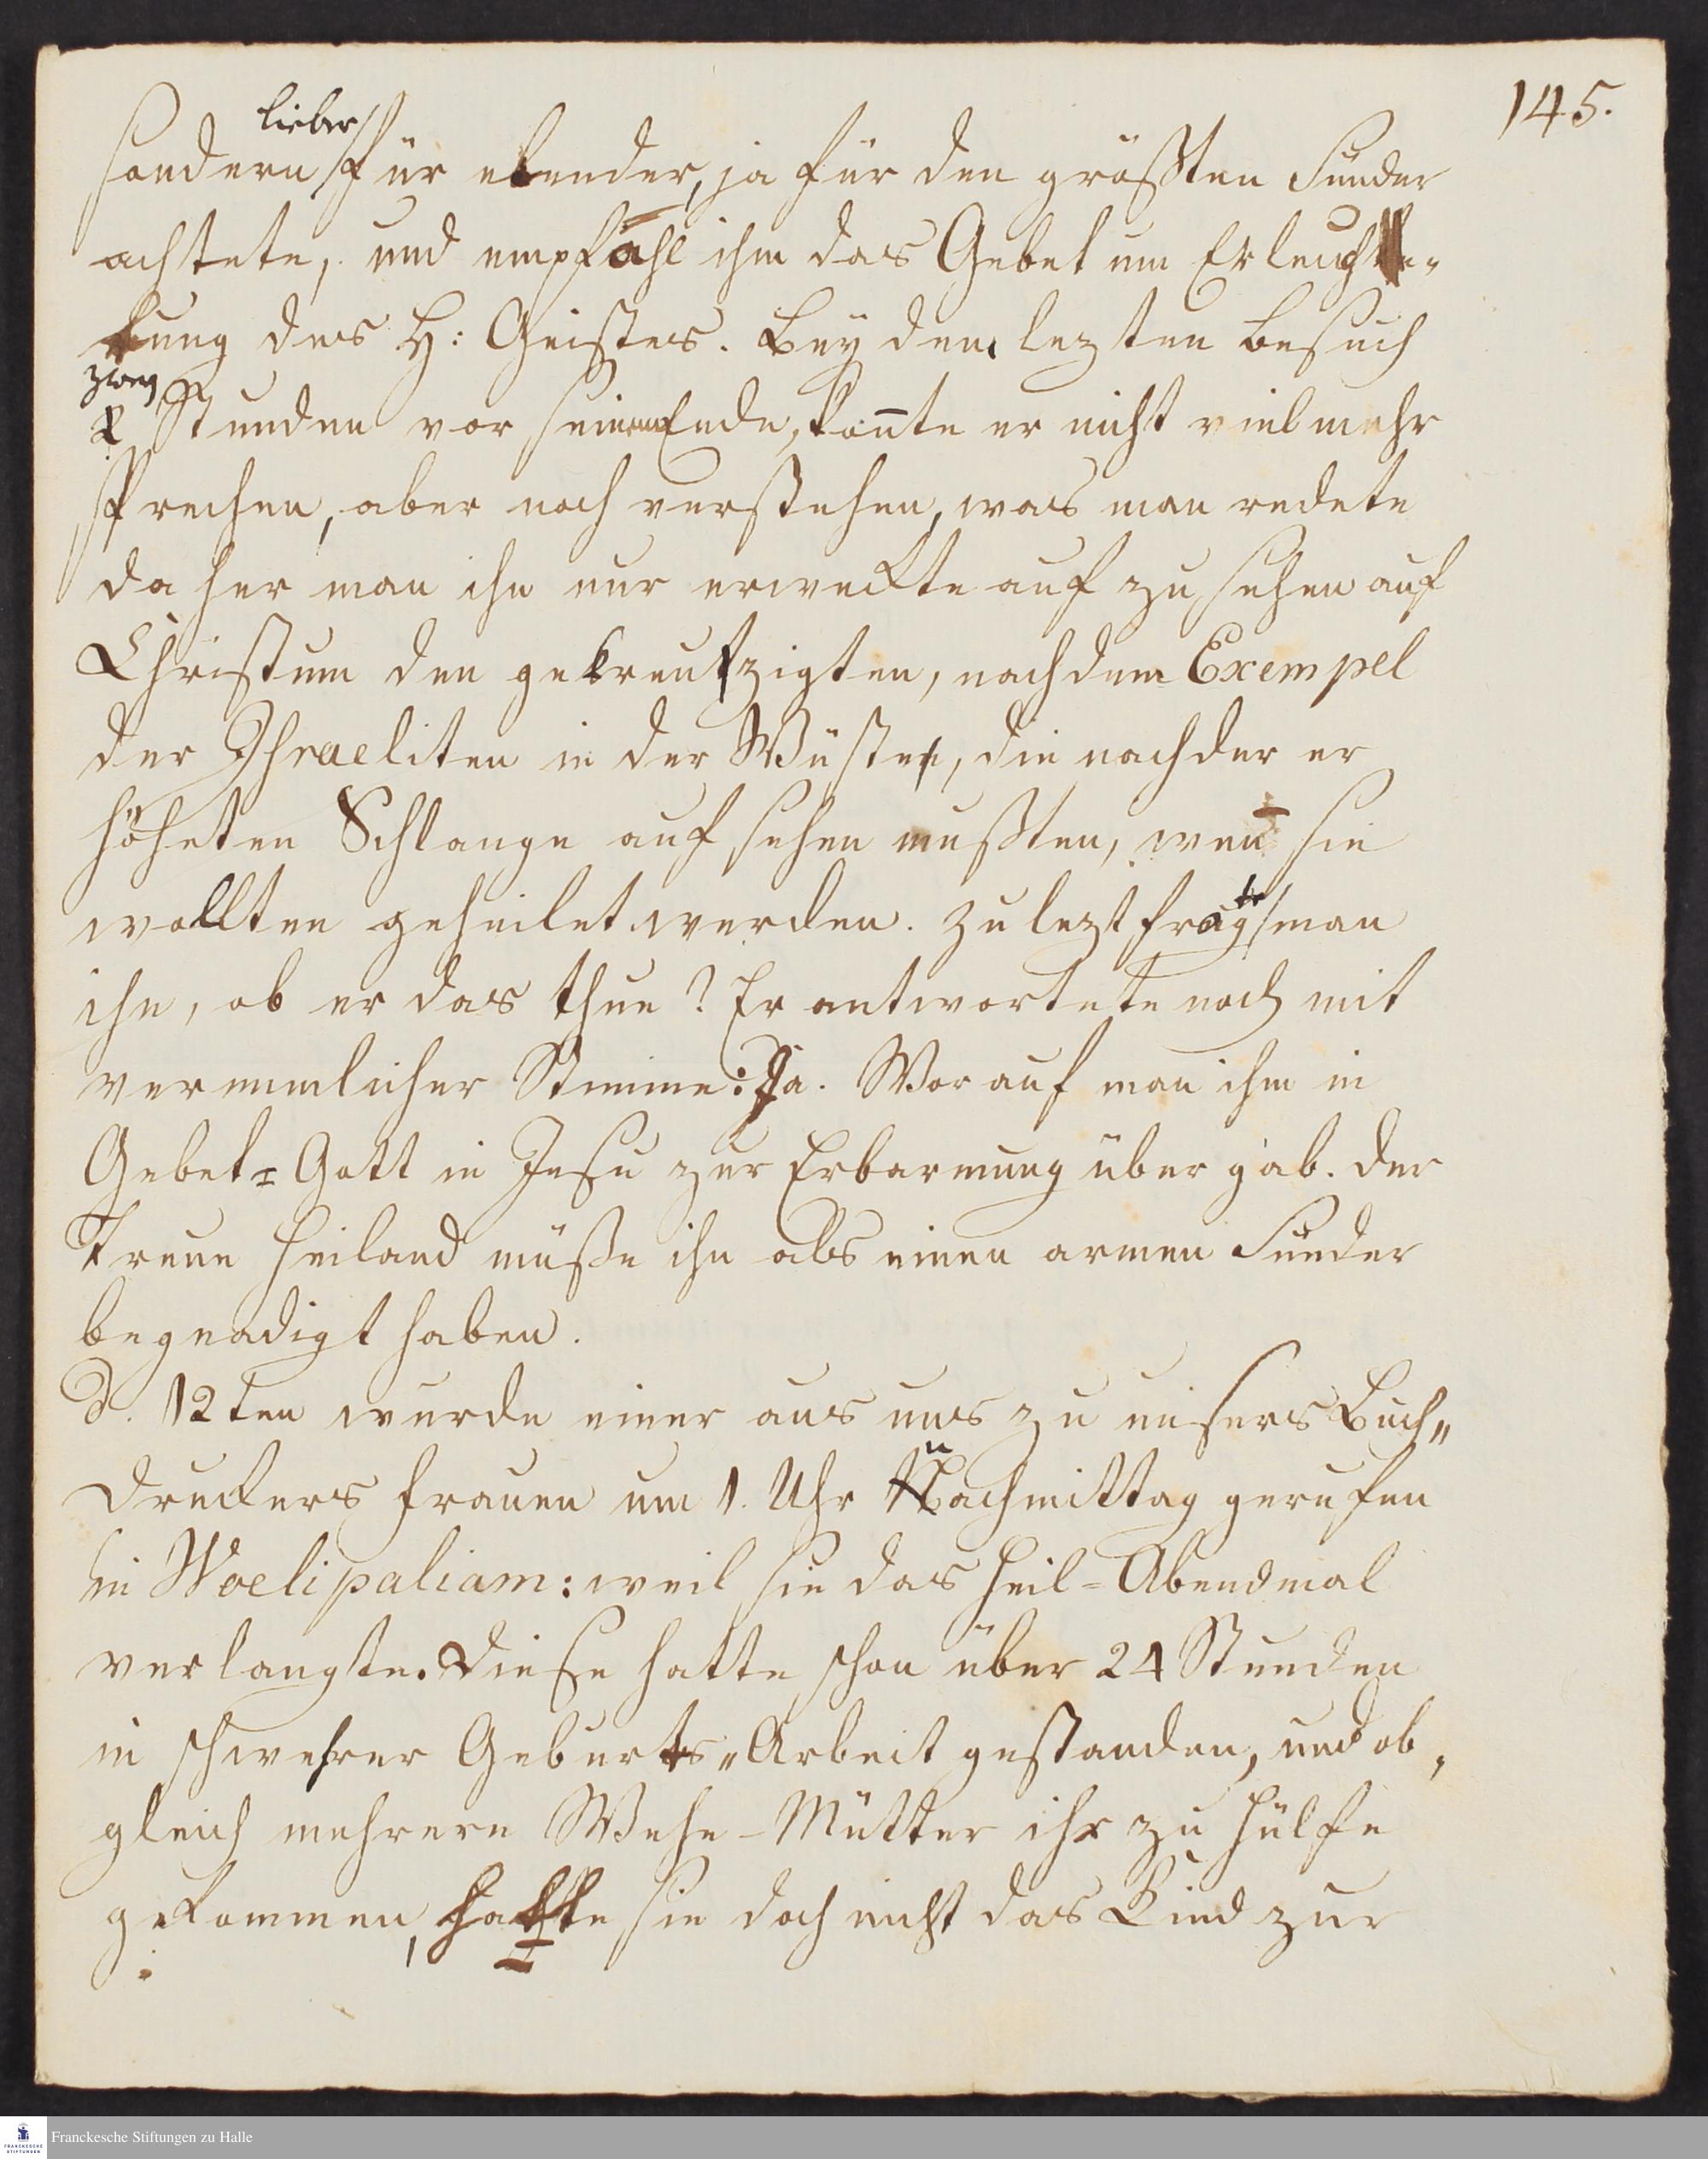 145.
lieber
sondern für elender, ja für den größten Sünder
achtete, und empfahl ihm das Gebet um Erleuch-
tung des H: Geistes. Bey dem lezten Besuch
zwey
2 Stunden vor seinem Ende, kon̄te er nicht viel mehr
sprechen, aber noch verstehen, was man redete
da her man ihn nur erweckte auf zu sehen auf
Christum den gekreutzigten, nach dem Exempel
der Ihraeliten in der Wüsten, die nach der er
höheten Schlange auf sehen mußten, wen̄ sie
wollten geheilet werden. zu lezt fragte man
ihn, ob er das thue? Er antwortete noch mit
vernemlicher Stimme: Ja. Worauf man ihm in
Gebet Gott in Jesu zur Erbarmung über gab. der
treue Heiland müße ihn als einen armen Sünder
begnadigt haben.
d. 12ten wurde einer aus uns zu unsers Buch„
druckers Frauen um 1. Uhr Nachmittag gerufen
in Woelipaliam: weil sie das Heil-Abendmal
verlangte. Diese hatte schon über 24 Stunden
in schwehrer Geburts„Arbeit gestanden, und ob„
gleich mehrere Wehe-Mütter ihr zu Hülfe
gekommen, hatte sie doch nicht das Kind zur
Franckesche Stiftungen zu Halle